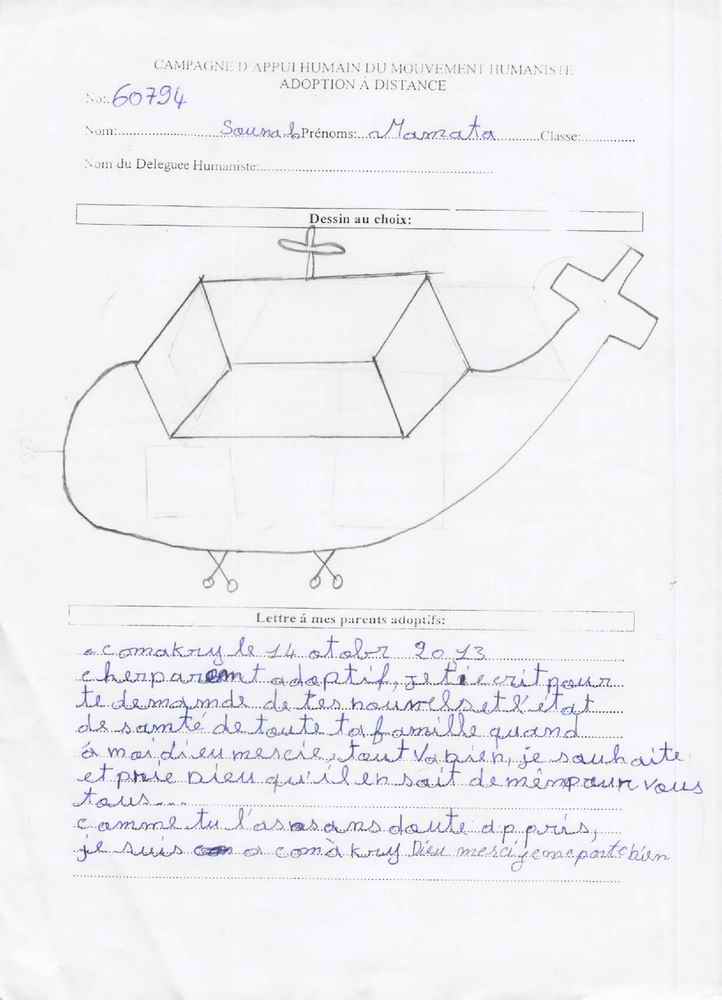 CAMPAGNE D'APPUI HUMAIN DU MOUVEMENT HUMANISTE
ADOPTION À DISTANCE
No: 60794
Nom: Prénoms: Mamata Classe:
Nom du Deleguee Humaniste:
Dessin au choix:
Lettre á mes parents adoptifs:
a comakry le 14 otobr 2013
cher parent adoptif, je t'ecrit pour
te demamde de tes nouvels et l'état
de samté de toute ta famille quand
á moi dieu mescie, tout va bien, je souhaite
et prie Dieu qu'il en soit de mêm pour vous
tous...
comme tu l'as sans doute appris,
je suis a conàkry Dieu mersi je me porte bien